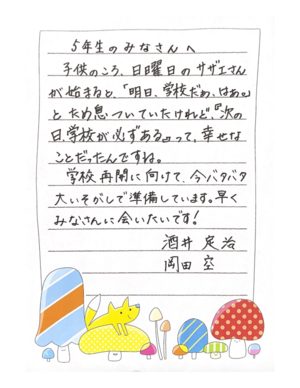 5年生のみなさんへ
子供のころ、日曜日のサザエさん
が始まると、「明日、学校だぁ、はぁ。」
とため息ついていたけれど、『次の
日、学校が必ずある』って、幸せな
ことだったんですね。
学校再開に向けて、今バタバタ
大いそがしで準備しています。早く
みなさんに会いたいです！
酒井
岡田